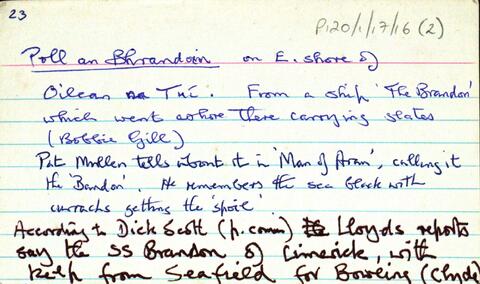 23
P120/1/17/16 (2)
Poll an Bhrandoin on E. shore of
Oilean na Tuí. From a ship 'The Brandon'
which went ashore there carrying slates
(Bobbie Gill)
Pat Mullen tells about it in 'Man of Aran', calling it
the 'Bandon'. He remembers the sea black with
currachs getting the 'spoil'.
According to Dick Scott (p. comm) Lloyds reports
say the SS Brandon of Limerick, with
kelp from Seafield for Bowling (Clyde)